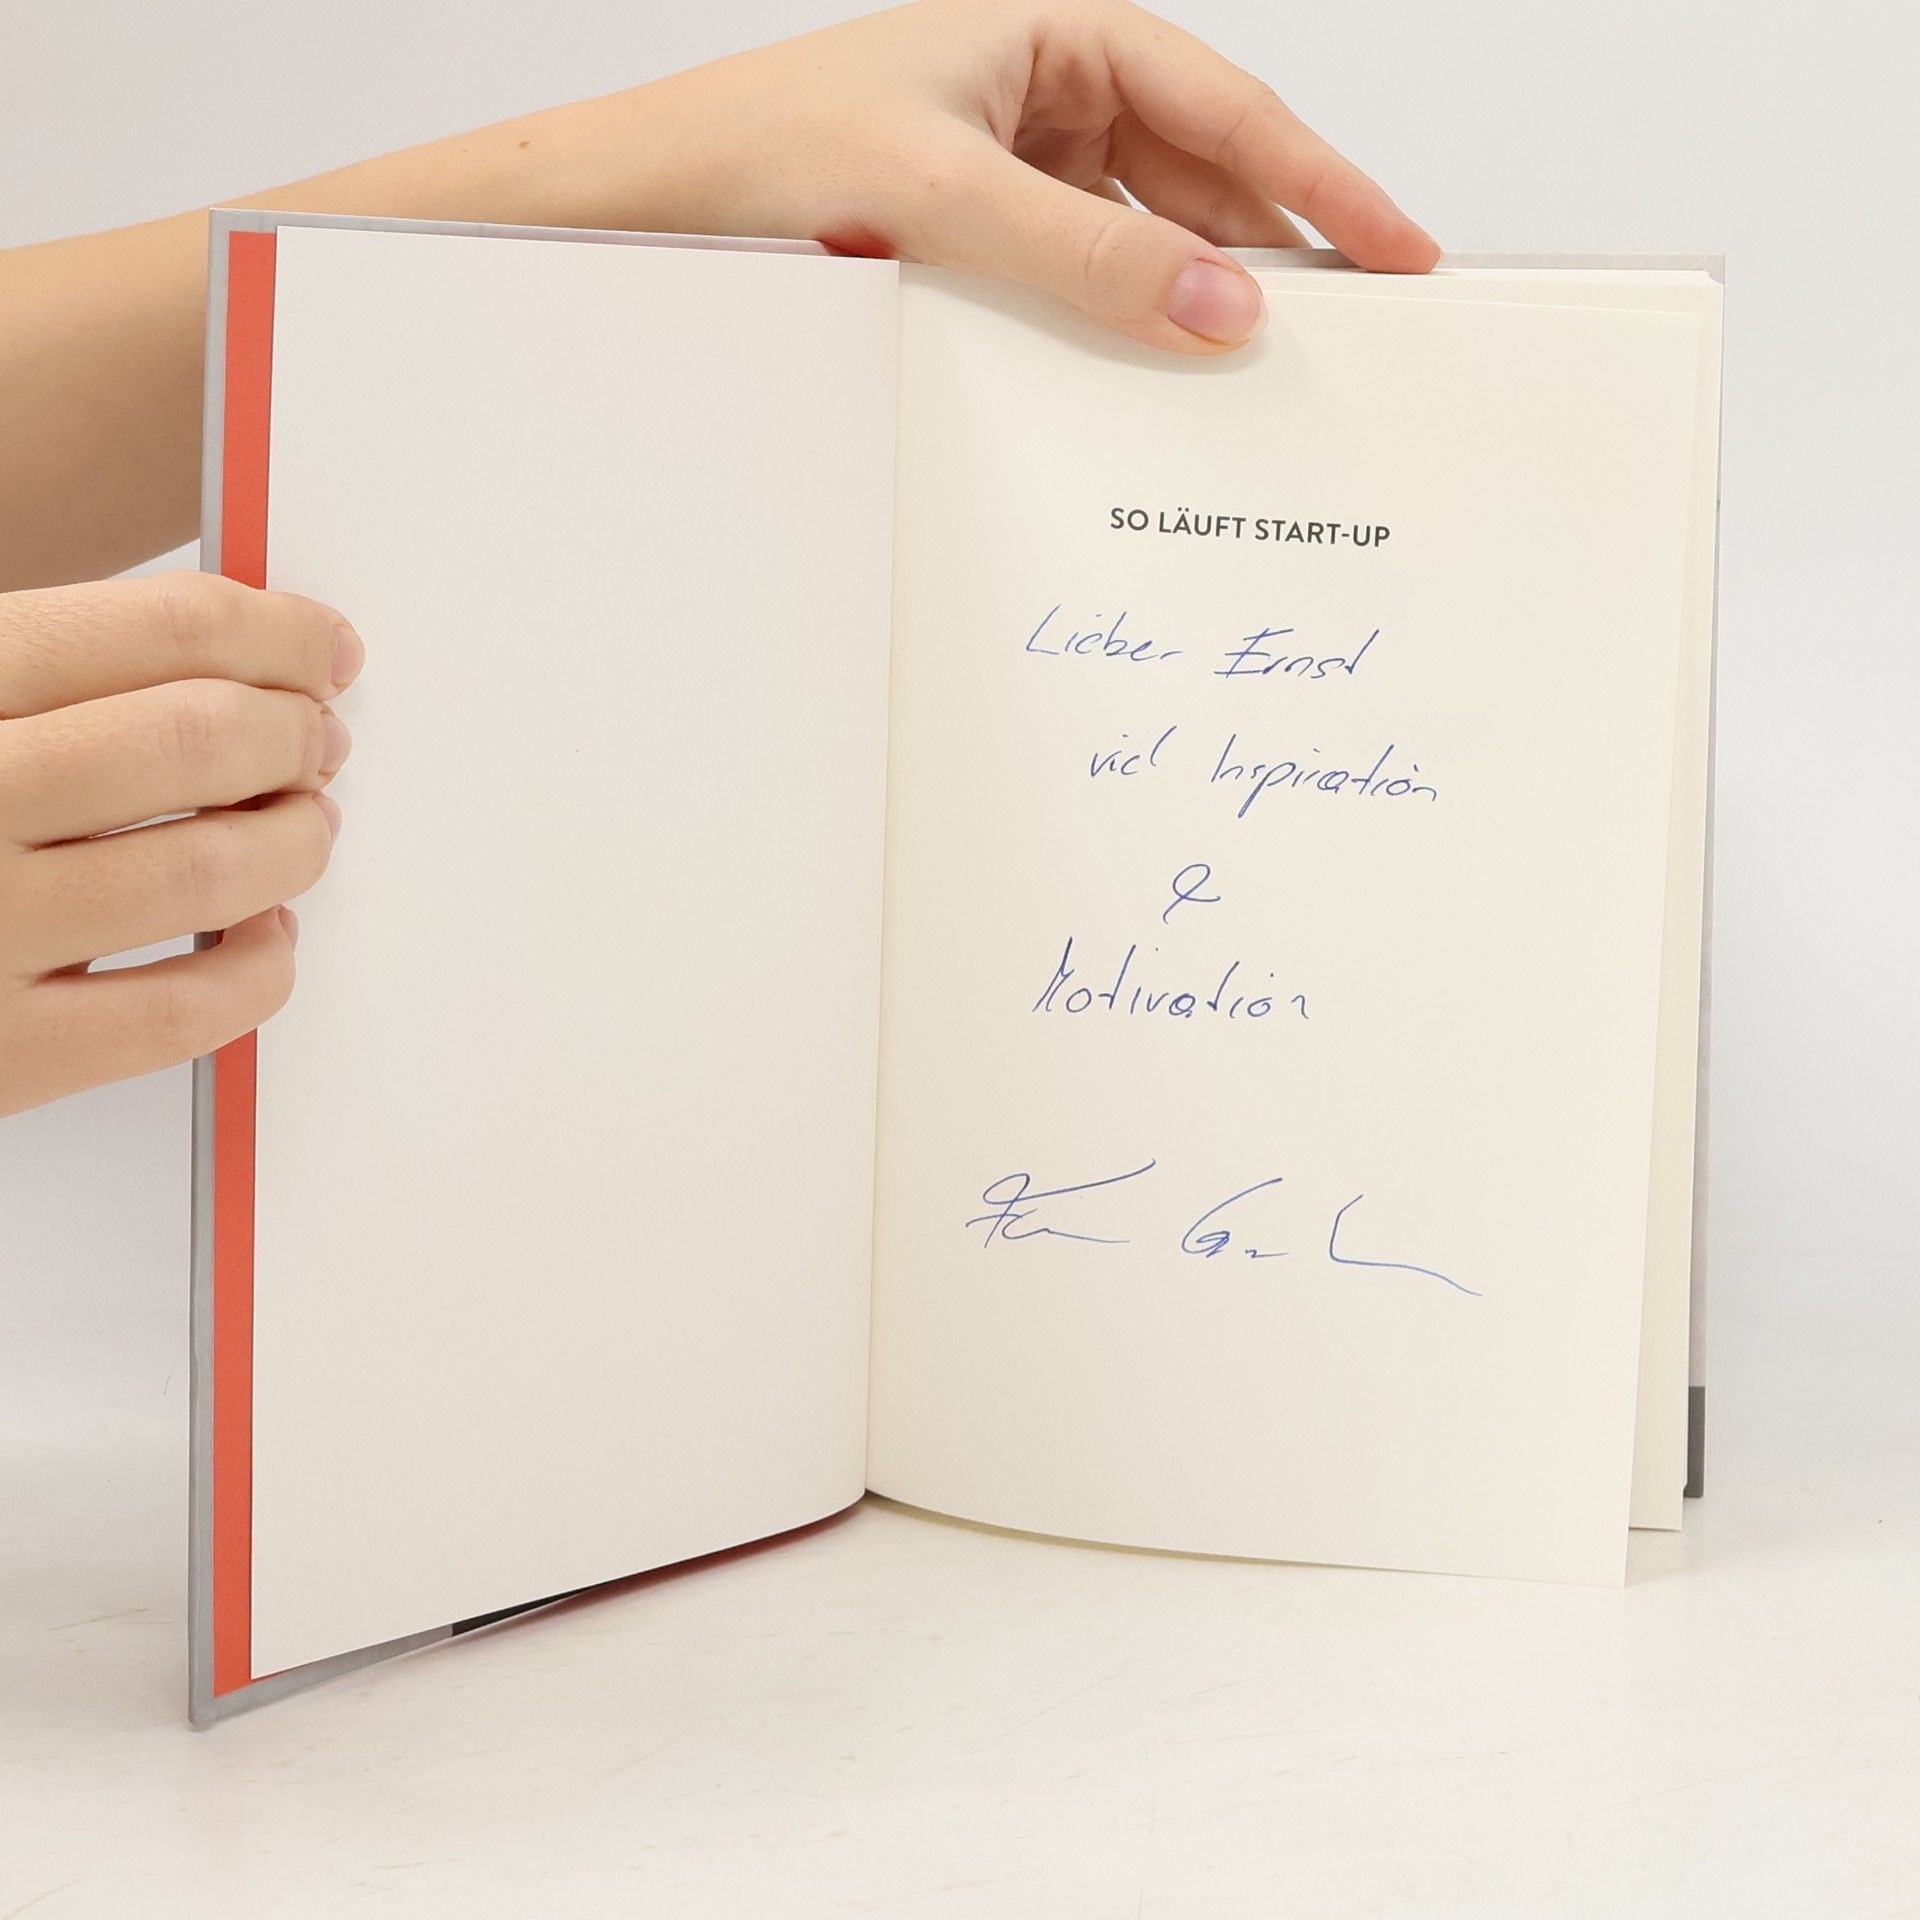 SO LÄUFT START-UP
Lieber Ernst
viel Inspiration
&
Motivation